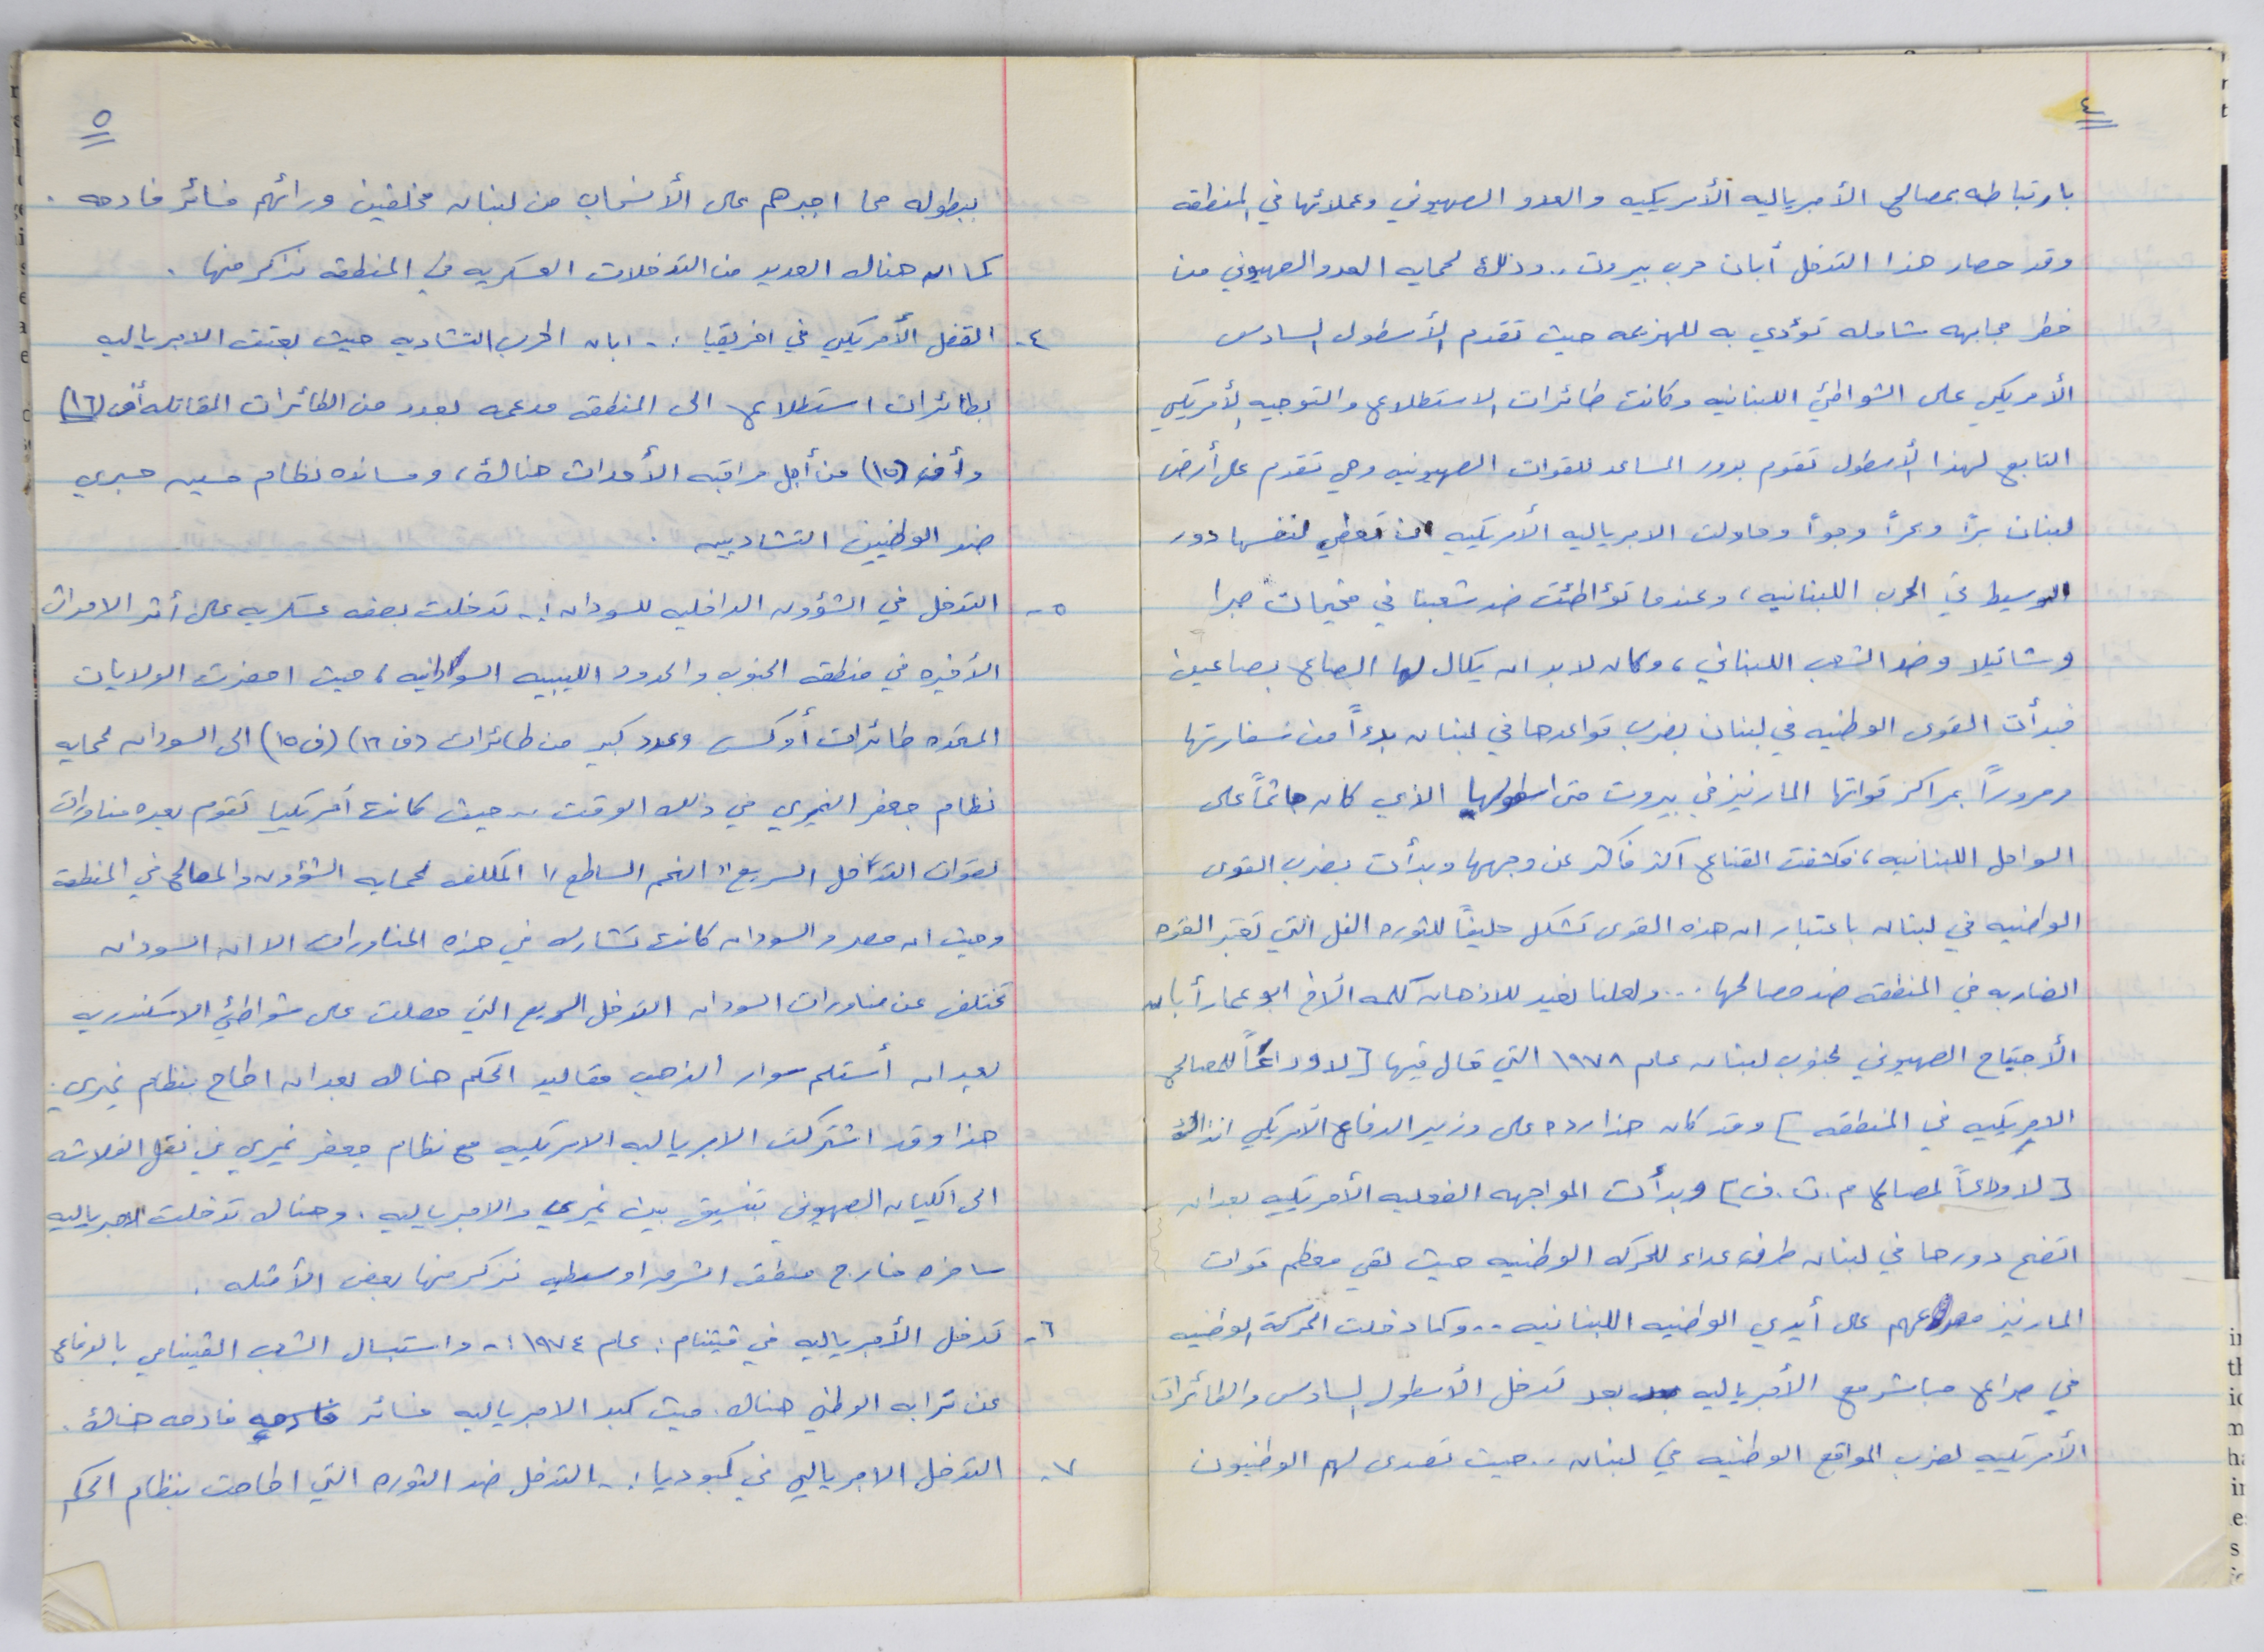 ٤
بارتباطه بمصالح الأمبرياليه الأمريكيه والعدو الصهيوني وعملائها في المنطقه
وقد صار هذا التدخل أبان حرب بيروت.. وذلك لحمايه العدو الصهيوني من
خطر مجابهه شامله تؤدي به للهزيمه حيث تقدم الأسطول السادس
الأمريكي على الشواطئ اللبنانيه وكانت طائرات الاستطلاع والتوجيه الأمريكي
التابع لهذا الأسطول تقوم بدور المساعد للقوات الصهيونيه وهي تقدم على أرض
لبنان برًا وبحرًا وجوًا وحاولت الامبرياليه الأمريكيه ان تعطي لنفسها دور
الوسيط في الحرب اللبنانيه، وعندما تؤاطئت ضد شعبنا في مخيمات صبرا
وشاتيلا وضد الشعب اللبناني، وكان لابد ان يكال لها الصاع بصاعين
فبدأت القوى الوطنيه في لبنان بضرب قواعدها في لبنان بدءاً من سفارتها
ومروراً بمراكز قواتها المارنيز في بيروت حتى اسطولها الذي كان جاثماً على
السواحل اللبنانيه، فكشفت القناع أكثر فأكثر عن وجهها وبدأت بضرب القوى
الوطنيه في لبنان باعتبار ان هذه القوى تشكل حليفًا للثوره الفل التي تعتبر القوه
الضاربه في المنطقه ضد مصالحها... ولعلنا نعيد للاذهان كلمه الأخ ابو عمار أبان
الأجتياح الصهيوني لجنوب لبنان عام ١٩٧٨ التي قال فيها [لا وداعًا للمصالح
الامريكيه في المنطقه] وقد كان هذا رده على وزير الدفاع الأمريكي انذاك
[لا وداعاً لمصالح م.ت.ف] وبدأت المواجهه الفعليه الأمريكيه بعد ان
اتضح دورها في لبنان طرف عداء للحركه الوطنيه حيث لقي معظم قوات
المارنيز مصرعهم على أيدي الوطنيه اللبنانيه.. وكما دخلت الحركة الوطنيه
في صراع مباشر مع الأمبرياليه بعد تدخل الأسطول السادس والطائرات
الأمريكيه لضرب المواقع الوطنيه في لبنان.. حيث تصدى لهم الوطنيون
٥
ببطوله مما اجبرهم على الأنسحاب من لبنان مخلفين ورائهم خسائر فادحه.
كما ان هناك العديد من التدخلات العسكريه في المنطقه نذكر منها.
٤- التدخل الأمريكي في افريقيا :- ابان الحرب التشاديه حيث بعثت الامبرياليه
بطائرات استطلاع الى المنطقه مدعمه بعدد من الطائرات المقاتله أف (١٦)
وأف (١٥) من أجل مراقبه الأحداث هناك، ومسانده نظام حسين حبري
ضد الوطنيين التشاديين.
٥- التدخل في الشؤون الداخليه للسودان :- تدخلت بصفه عسكريه على أثر الاحداث
الأخيره في منطقه الجنوب والحدود الليبيه السودانيه، حيث احضرت الولايات
المتحده طائرات أوكس وعدد كبير من طائرات (ف ١٦) (ف ١٥) الى السودان لحمايه
نظام جعفر النميري في ذلك الوقت.. حيث كانت أمريكيا تقوم بعده مناورات
لقوات التدخل السريع "النجم الساطع" المكلفه لحمايه الشؤون والمصالح في المنطقه
وحيث ان مصر والسودان كانت تشارك في هذه المناورات الا ان السودان
تختلف عن مناورات السودان التدخل السريع التي حصلت على شواطئ الاسكندريه
بعد ان أستلم سوار الذهب مقاليد الحكم هناك بعد ان اطاح بنظام نميري.
هذا وقد اشتركت الامبرياليه الامريكيه مع نظام جعفر نميري في نقل الفلاشه
الى الكيان الصهيوني بتنسيق بين نميري والامبرياليه. وهناك تدخلت الامبرياليه
سافره خارج منطقه الشرق اوسطيه نذكر منها بعض الأمثله.
٦- تدخل الأمبرياليه في فيتنام: عام ١٩٧٤ :- واستبسال الشعب الفيتنامي بالدفاع
عن ترابه الوطني هناك. حيث كبد الامبرياليه خسائر فادحه هناك.
٧- التدخل الامبريالي في كمبوديا :- التدخل ضد الثوره التي اطاحت بنظام الحكم